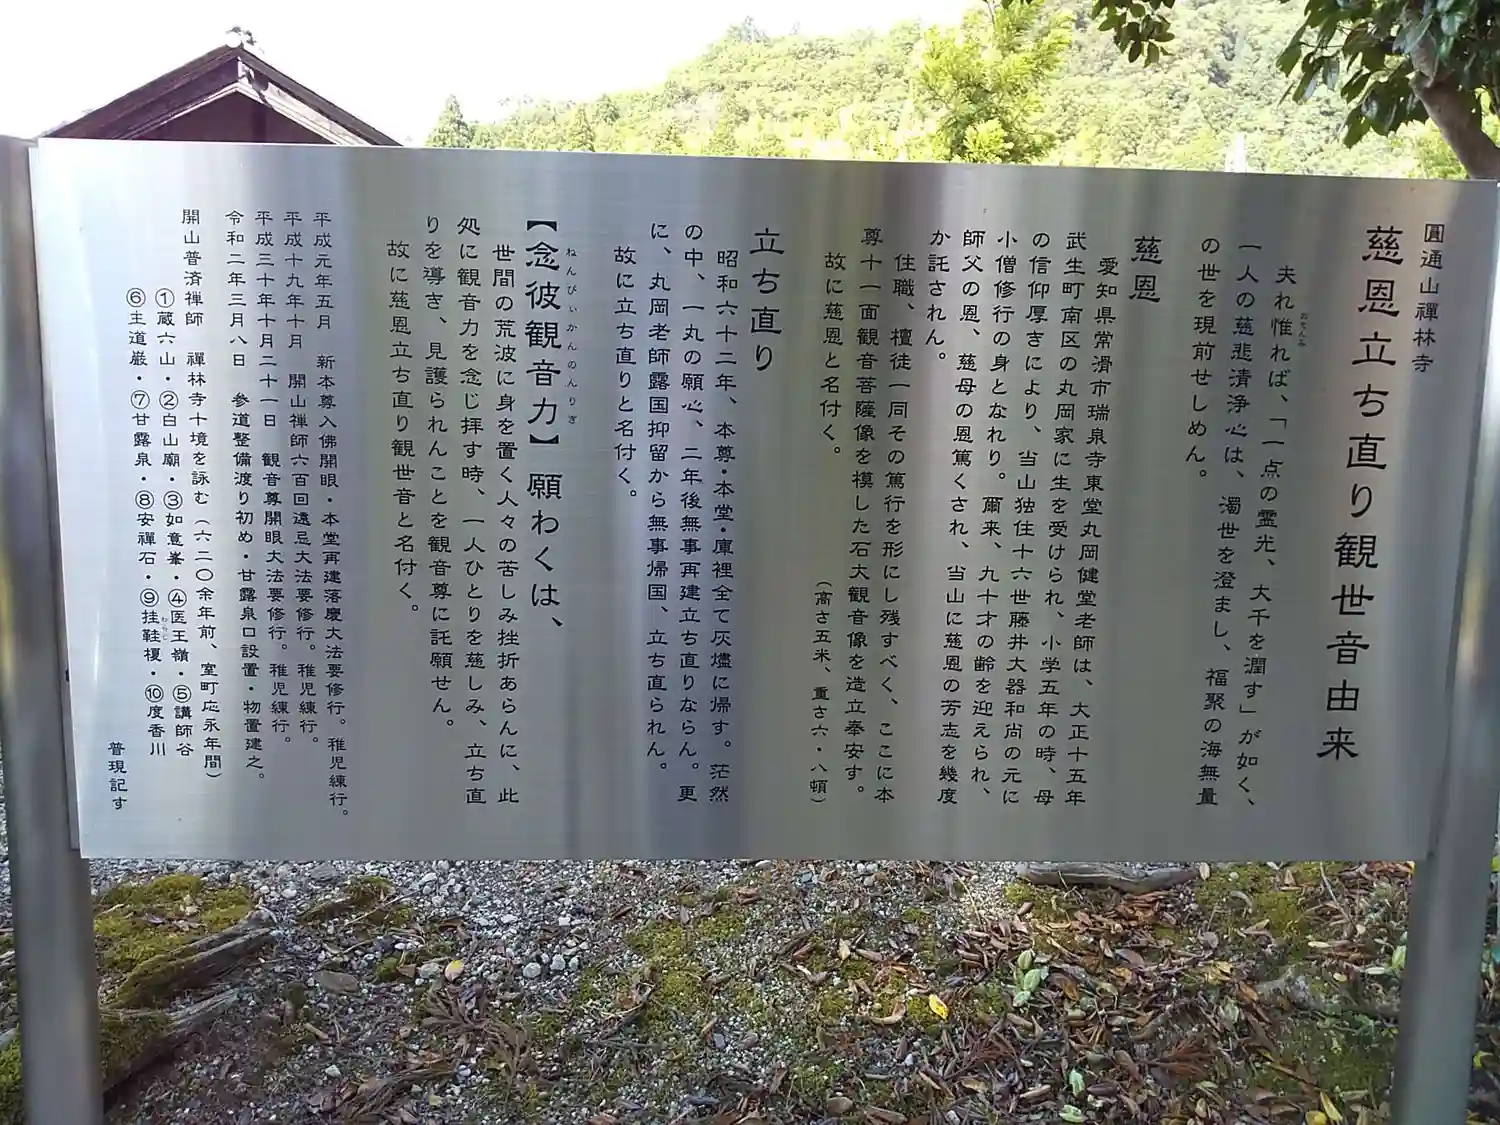 圓通山禪林寺
慈恩立ち直り観世音由来
夫れ惟れば、「一点の霊光、大千を潤す」が如く、
一人の慈悲清浄心は、濁世を澄まし、福聚の海無量
の世を現前せしめん。
慈恩
愛知県常滑市瑞泉寺東堂丸岡健堂老師は、大正十五年
武生町南区の丸岡家に生を受けられ、小学五年の時、母
の信仰厚きにより、当山独住十六世藤井大器和尚の元に
小僧修行の身となれり。爾来、九十才の齢を迎えられ、
師父の恩、慈母の恩篤くされ、当山に慈恩の芳志を幾度
か託されん。
住職、檀徒一同その篤行を形にし残すべく、ここに本
尊十一面観音菩薩像を模した石大観音像を造立奉安す。
故に慈恩と名付く。
(高さ五米、重さ六・八頓)
立ち直り
昭和六十二年、本尊・本堂・庫裡全て灰燼に帰す。茫然
の中、一丸の願心、二年後無事再建立ち直りならん。更
に、丸岡老師露国抑留から無事帰国、立ち直られん。
故に立ち直りと名付く。
【念彼観音力】願わくは、
ねんぴいかんのんりき
世間の荒波に身を置く人々の苦しみ挫折あらんに、此
処に観音力を念じ拝す時、一人ひとりを慈しみ、立ち直
りを導き、見護られんことを観音尊に託願せん。
故に慈恩立ち直り観世音と名付く。
平成元年五月 新本尊入佛開眼・本堂再建落慶大法要修行。稚児練行。
平成十九年十月 開山禅師六百回遠忌大法要修行。稚児練行。
平成三十年十月二十一日 観音尊開眼大法要修行。稚児練行。
令和二年三月八日 参道整備渡り初め・甘露泉口設置・物置建之。
開山普済禅師 禪林寺十境を詠む(六二〇余年前、室町応永年間)
①蔵六山・②白山廟・③如意峯・④医王嶺・⑤講師谷
⑥主道巌・⑦甘露泉・⑧安禪石・⑨挂鞋榎・⑩度香川
わらじ
普現記す